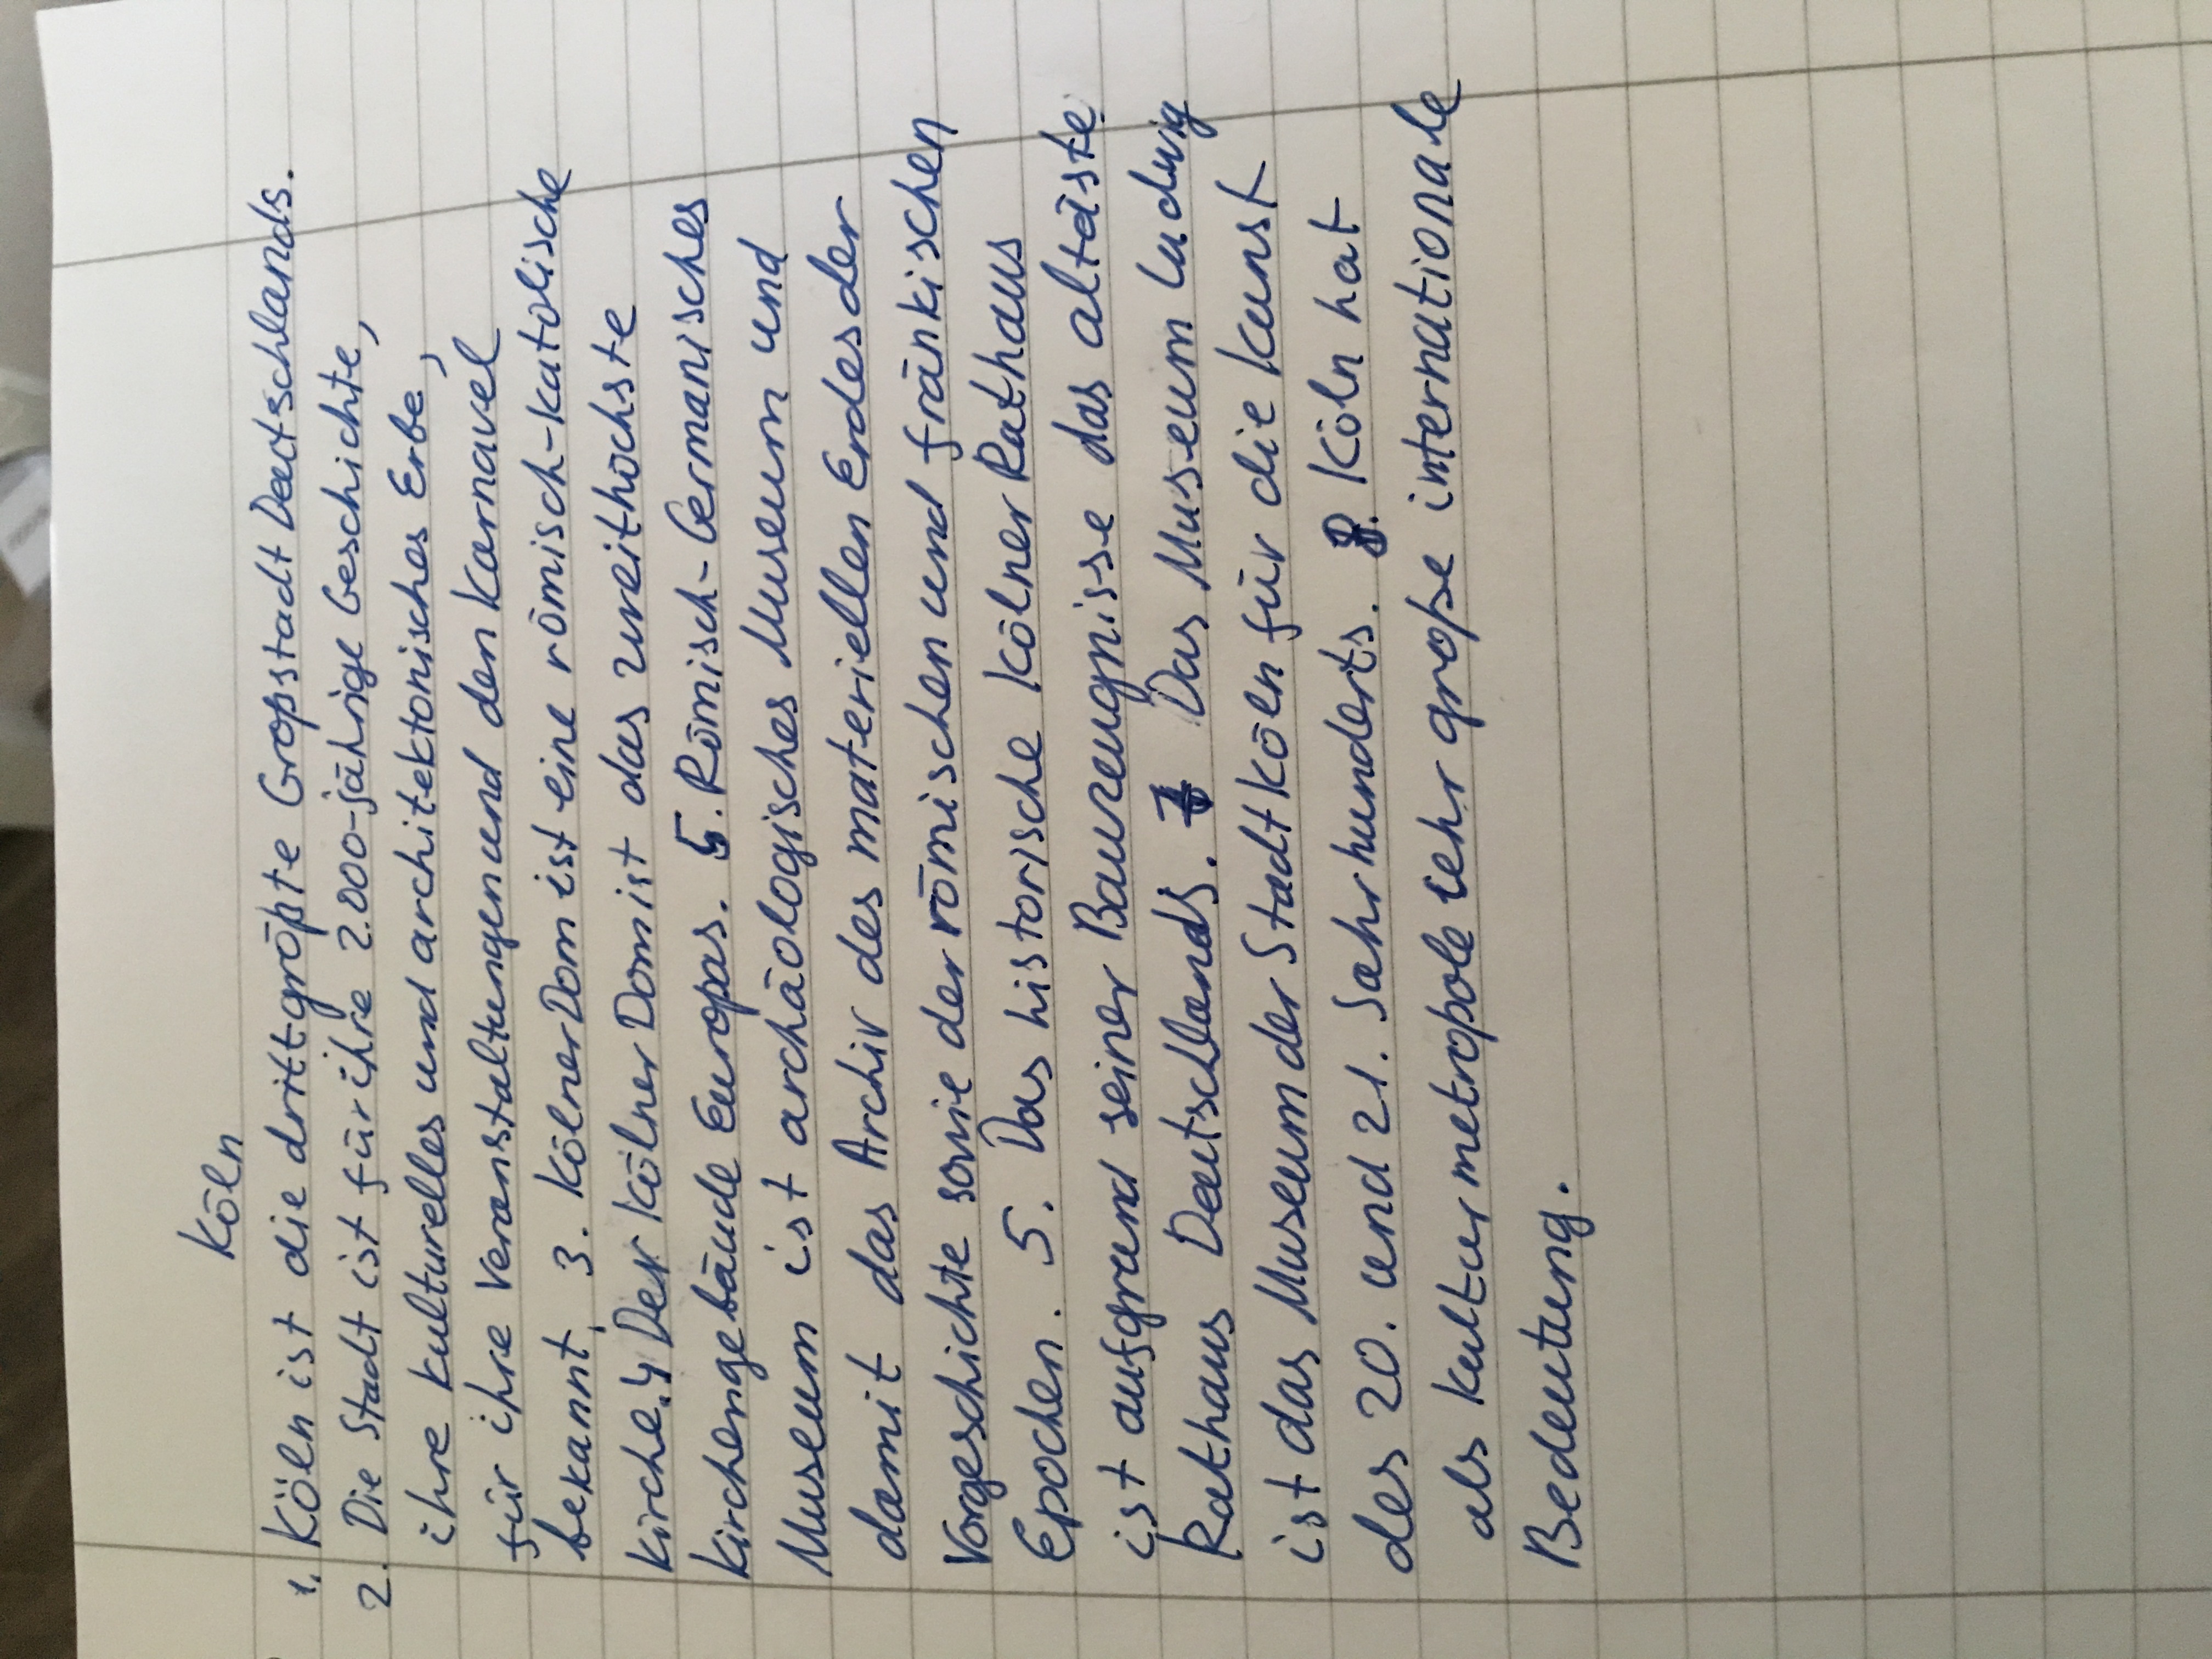 Köln
1. Köln ist die drittgrößte Grossstadt Deutschlands.
2. Die Stadt ist für ihre 2.000-jährige Geschichte,
ihre kulturelles und architektonisches Erbe,
für ihre Veranstaltungen und den Karnavel
bekannt. 3. Kölner Dom ist eine römisch-katolische
Kirche. 4 Der Kölner Dom ist das zweithöchste
Kirchengebäude Europas. 5. Römisch-Germanisches
Museum ist archäologisches Museum und
damit das Archiv des materiellen Erdes der
Vorgeschichte sowie der römischen und fränkischen
Epochen. 5. Das historische Kölner Rathaus
ist aufgrund seiner Bauzeugnisse das altäste
Rathaus Deutschlands. 7 Das Museum Ludwig
ist das Museum der Stadt Köln für die Kunst
des 20. und 21. Jahrhunderts. 8. Köln hat
als Kulturmetropole sehr große internationale
Bedeutung.